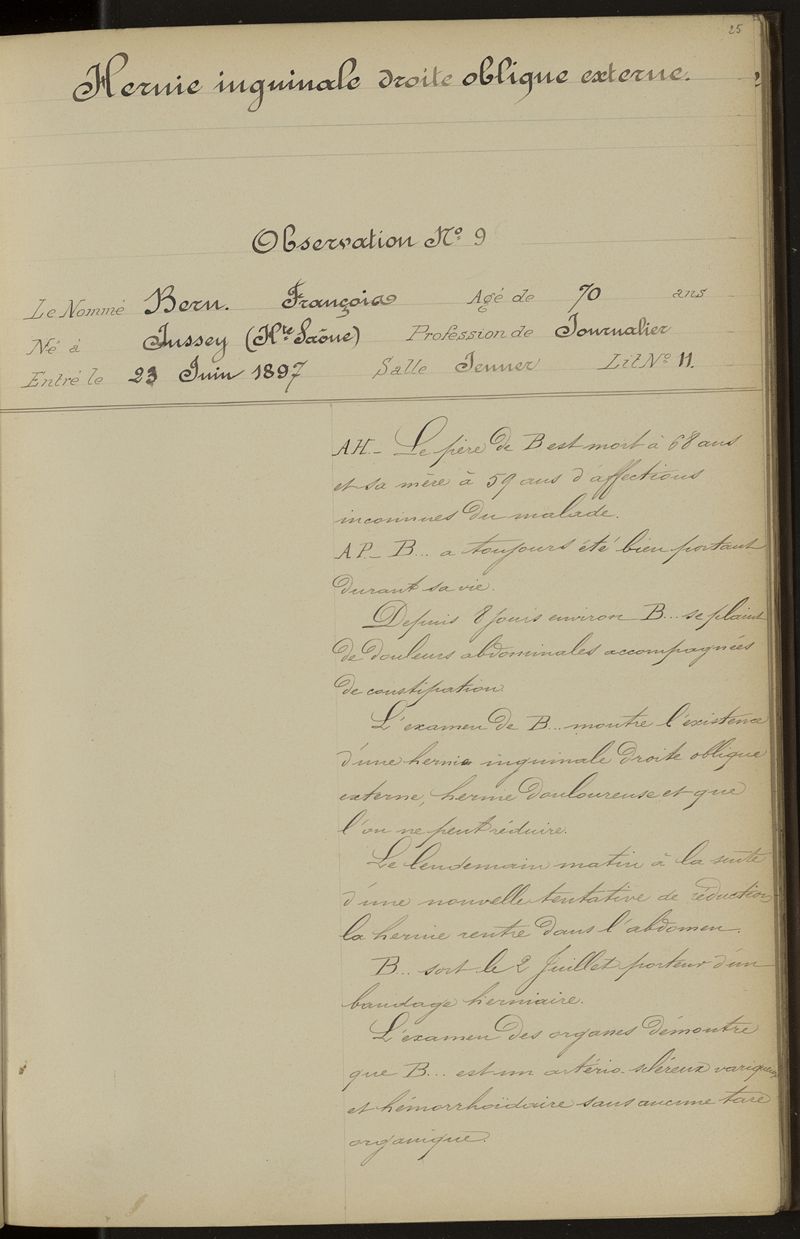 25
Hernie inguinale droite oblique externe.
Observation No. 9
Le Nommé Bern. François Agé de 70 ans
Né à Jussey (Hte Saône) Profession de Journalier
Entré le 23 Juin 1897 Salle Jenner Lit No 11.
AH_ Le père de B est mort à 68 ans
et sa mère à 59 ans d'affections
inconnues du malade.
AP_ B... a toujours été bien portant
durant sa vie.
Depuis 8 jours environ B... se plaint
de douleurs abdominales accompagnées
de constipation
L'examen de B... montre l'existence
d'une hernie inguinale droite oblique
externe, hernie douloureuse et que
l'on ne peut réduire.
Le lendemain matin à la suite
d'une nouvelle tentative de réduction
la hernie rentre dans l'abdomen.
B... sort le 2 Juillet porteur d'un
bandage herniaire.
L'examen des organes démontre
que B... est un artério-scléreux variqueux
et hémorrhoïdaire sans aucune tare
organique.